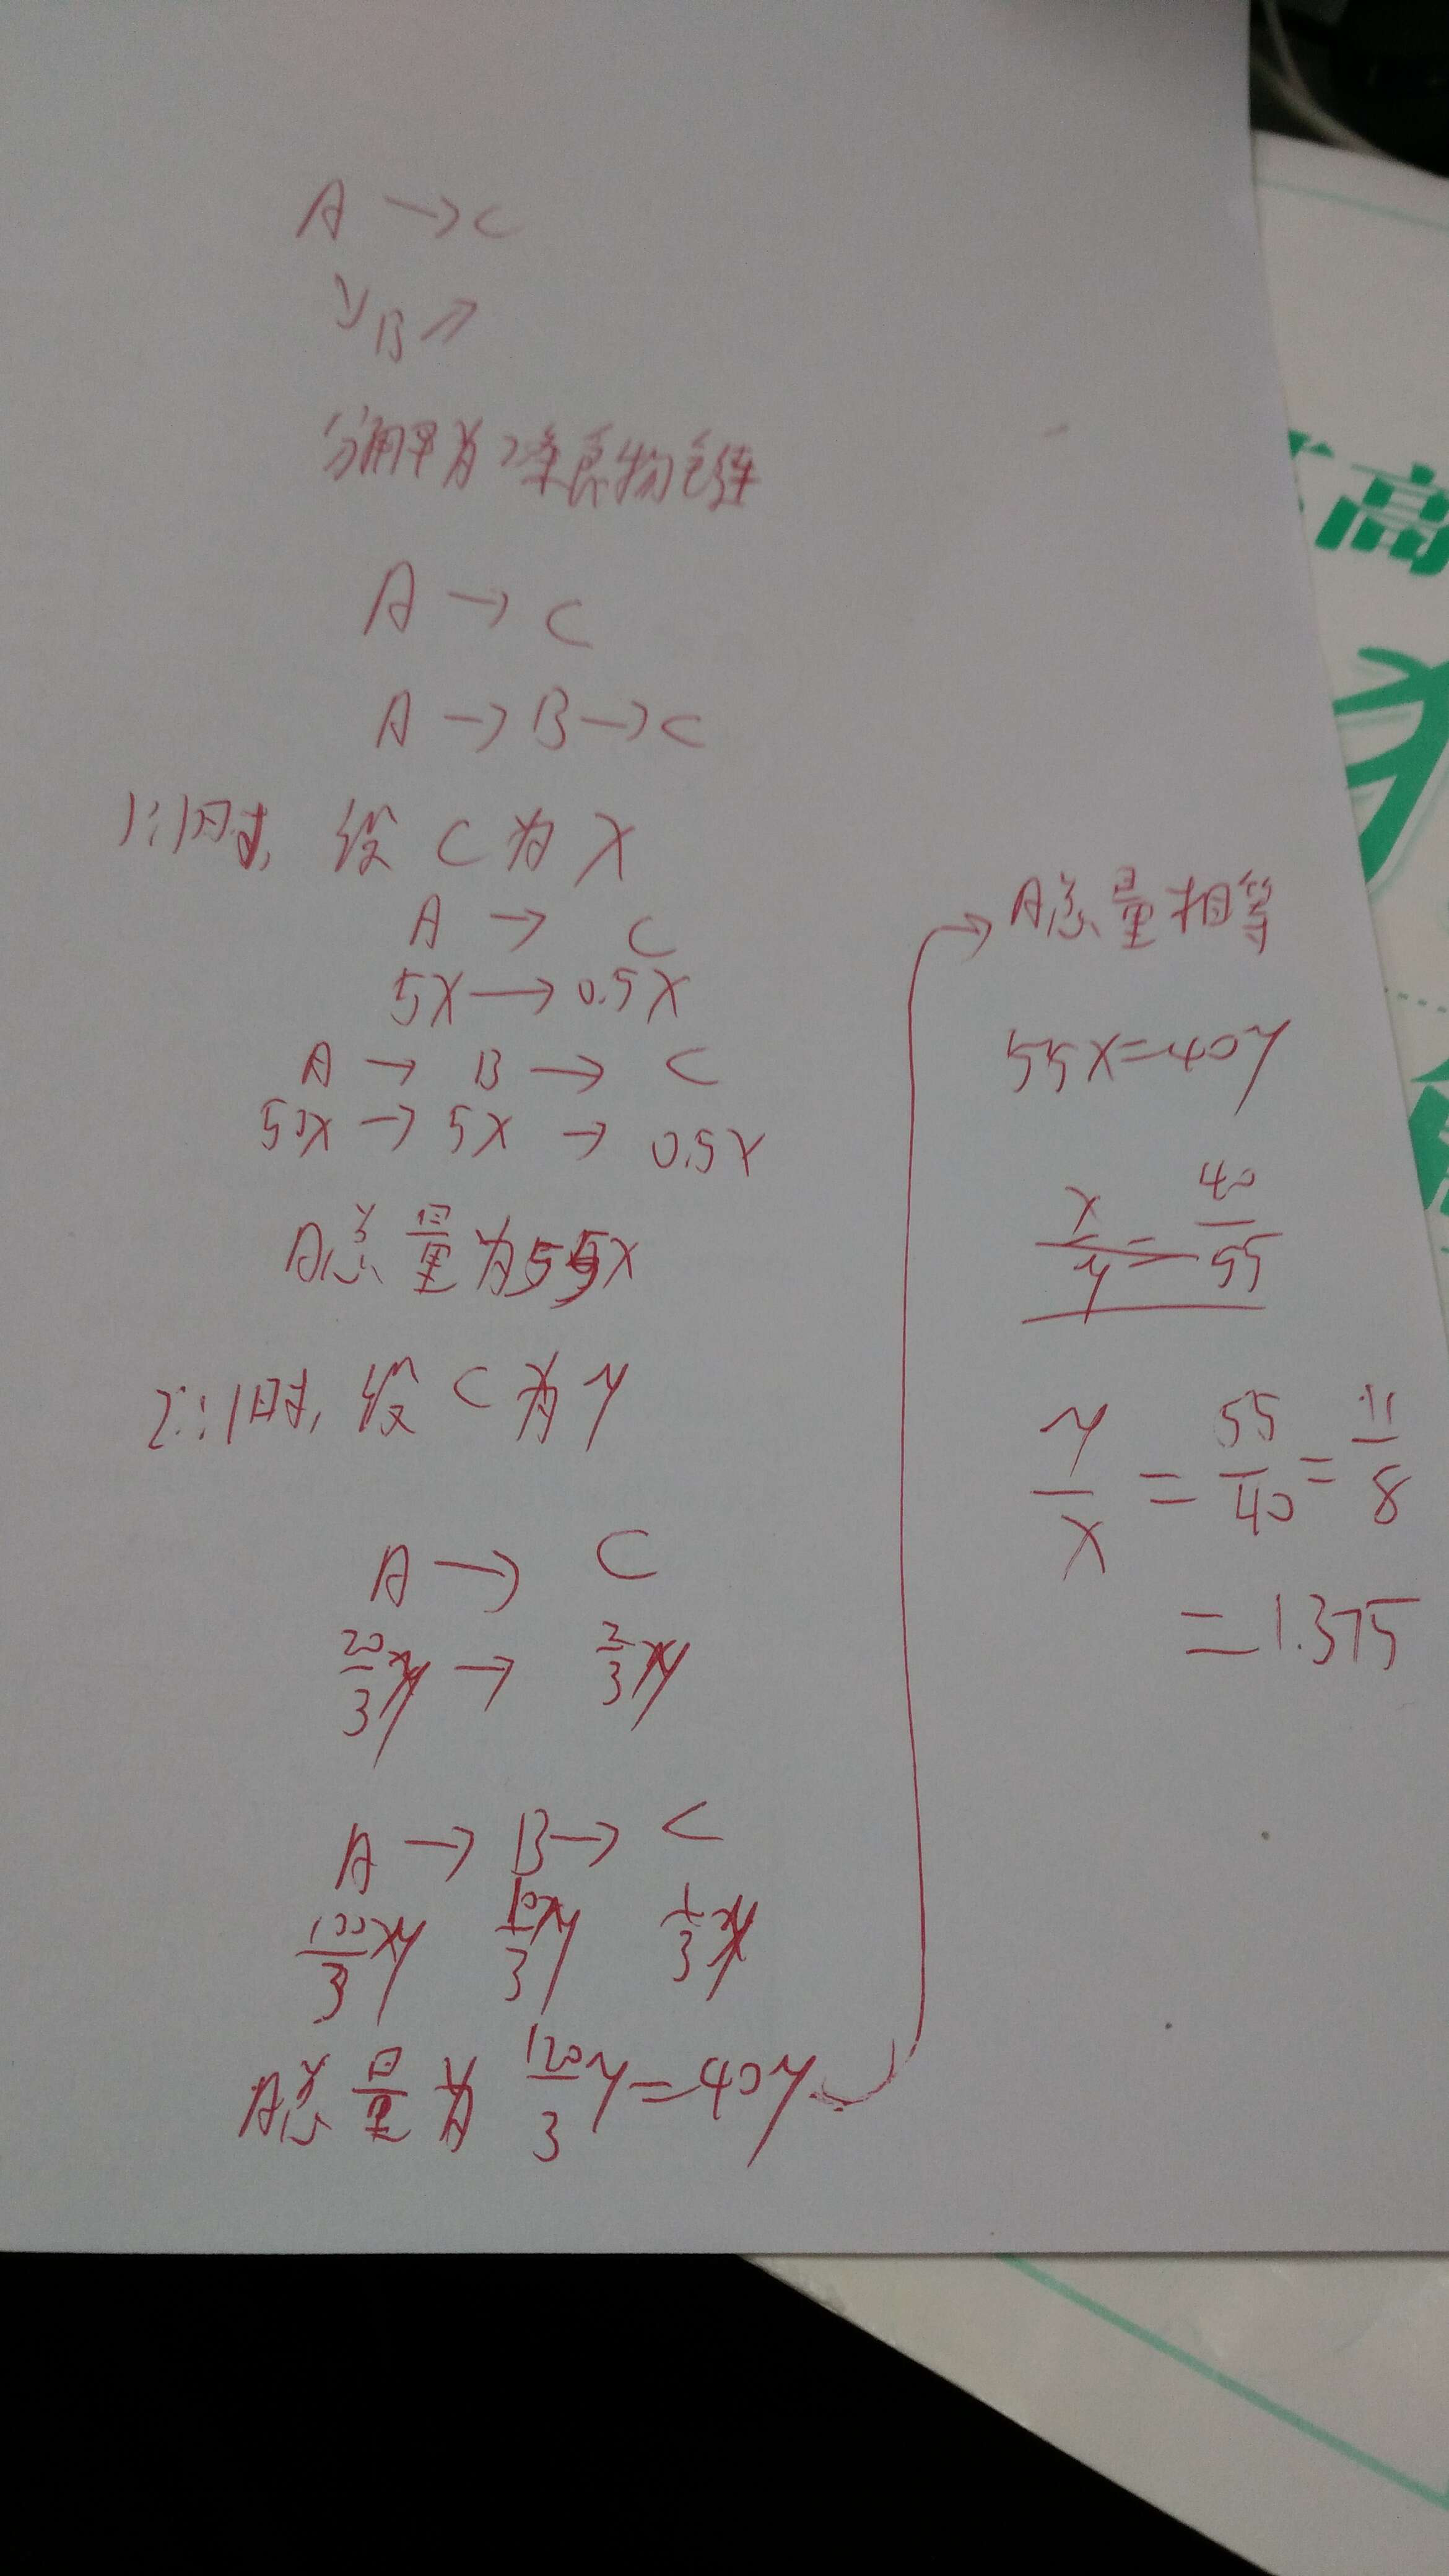 A → C
↘B↗
分解为2条食物链
A → C
A → B → C
1:1时, 设C为X
A → C
5X → 0.5X
A → B → C
50X → 5X → 0.5X
A总量为55X
2:1时, 设C为y
A → C
20/3 y → 2/3 y
A → B → C
100/3 y 10/3 y 1/3 y
A总量为 120/3 y = 40y
→ A总量相等
55X=40y
x/y = 40/55
y/x = 55/40 = 11/8
= 1.375
高